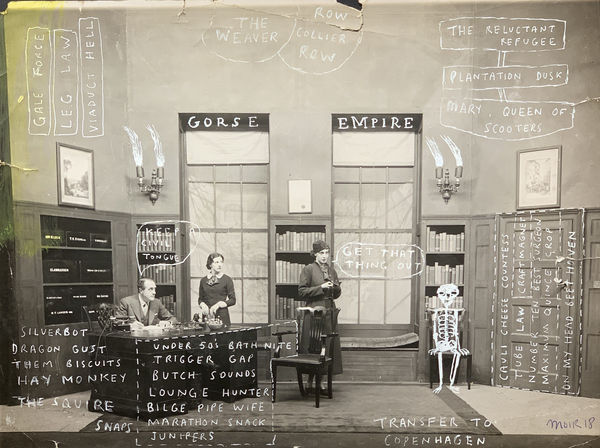 THE
WEAVER
ROW
COLLIER
ROW
THE RELUCTANT
REFUGEE
PLANTATION DUSK
MARY, QUEEN OF
SCOOTERS
GALE FORCE
LEG LAW
VIADUCT HELL
GORSE
EMPIRE
KEEP A
CIVIL
TONGUE
GET THAT
THING OUT
CAULI CHEESE COUNTESS
TUBE LAW CRAFT MAGNET
NUMBER TEN REST SURGEON
MAXIMUM QUINCE CROP
ON MY HEAD GEEFHAVEN
SILVERBOT
DRAGON GUST
THEM BISCUITS
HAY MONKEY
THE SQUIRE
SNAPS
UNDER 50'S BATH NITE
TRIGGER GAP
BUTCH SOUNDS
LOUNGE HUNTER
BILGE PIPE WIFE
MARATHON SNACK
JUNIPERS
TRANSFER TO
COPENHAGEN
MOIR 18